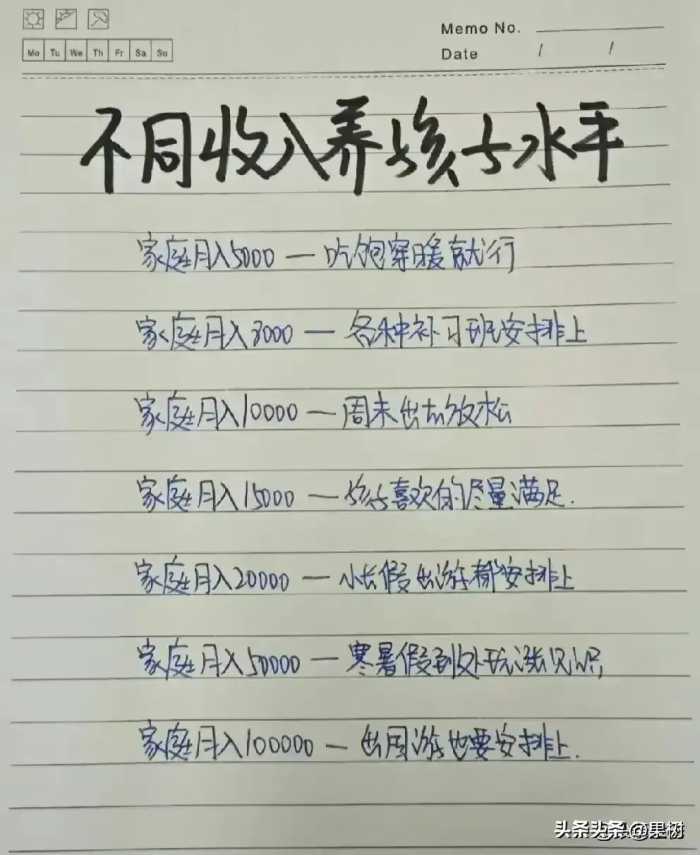 Memo No.
Mo Tu We Th Fr Sa Su
Date / /
不同收入养孩子水平
家庭月入5000 — 吃饱穿暖就行
家庭月入8000 — 各种补习班安排上
家庭月入10000 — 周末出去放松
家庭月入15000 — 孩子喜欢的尽量满足.
家庭月入20000 — 小长假出游都安排上
家庭月入50000 — 寒暑假到处玩涨见识
家庭月入100000 — 出国游也要安排上.
头条 @果树